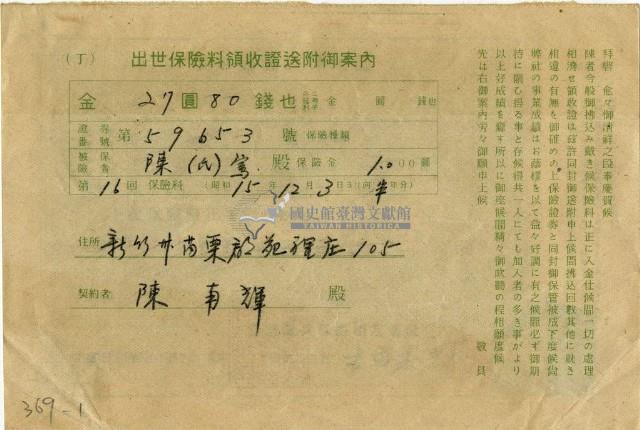 (丁)
出世保險料領收證送附御案內
金 27 圓 80 錢也 金 圓 錢也
證券番號 第 59653 號 保險種類
被保險者 陳(氏) 殿 保險金 1,000 圓
第 16 回 保險料 (昭和 15 年 12. 3 半 年分)
國史館臺灣文獻館
TAIWAN HISTORICA
住所 新竹州苗栗郡苑裡庄 105
契約者 陳 輝 殿
拜啓 愈々御淸祥之段奉慶賀候
陳者今般御拂込み戴き候保險料は正に入金仕候間一切の處理
相濟せ領收證は玆許同封御送附申上候間拂込回數其他に就き
相違の有無を御確めの上保險證券と同封御保管被成下度候尙
弊社の事業成績はお蔭樣を以て益々好調に有之候間必ず御期
待に副ひ得る事と存候得共一人にても加入者の多き事がより
以上好成績を
先は右御案內旁々御願申上候
敬具
369-1